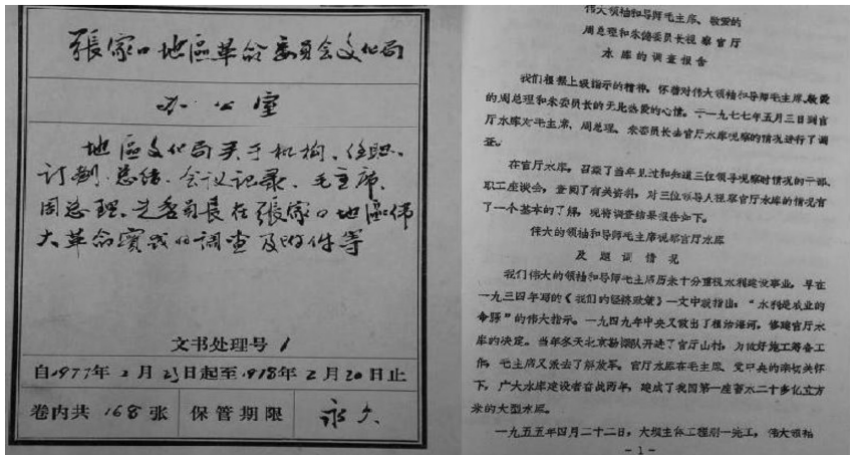 張家口地區革命委員会文化局
办公室
地區文化局关于机构、任职、
订划、总结、会议记录、毛主席、
周总理、朱委員長在張家口地區伟
大革命實践的調查及附件等
文书处理号 1
自1977年2月25日起至1978年2月20日止
卷内共168张 保管期限 永久
伟大领袖和导师毛主席、敬爱的
周总理和朱德委员长视察官厅
水库的调查报告
我们根据上级指示的精神，怀着对伟大领袖和导师毛主席、敬爱
的周总理和朱委员长的无比热爱的心情，于一九七七年五月三日到官
厅水库对毛主席、周总理、朱委员长去官厅水库视察的情况进行了调
查。
在官厅水库，召开了当年见过和知道三位领导视察时情况的干部、
职工座谈会，查阅了有关资料，对三位领导人视察官厅水库的情况有
了一个基本的了解，现将调查结果报告如下。
伟大的领袖和导师毛主席视察官厅水库
及题词情况
我们伟大的领袖和导师毛主席历来十分重视水利建设事业，早在
一九三四年写的《我们的经济政策》一文中就指出：“水利是农业的
命脉”的伟大指示。一九四九年中央又做出了根治海河，修建官厅水
库的决定。当年冬天北京勘测队开进了官厅山村，为做好施工筹备工
作，毛主席又派去了解放军。官厅水库在毛主席、党中央的亲切关怀
下，广大水库建设者奋战两年，建成了我国第一座蓄水二十多亿立方
米的大型水库。
一九五五年四月二十二日，大坝主体工程刚一完工，伟大领袖
-1-